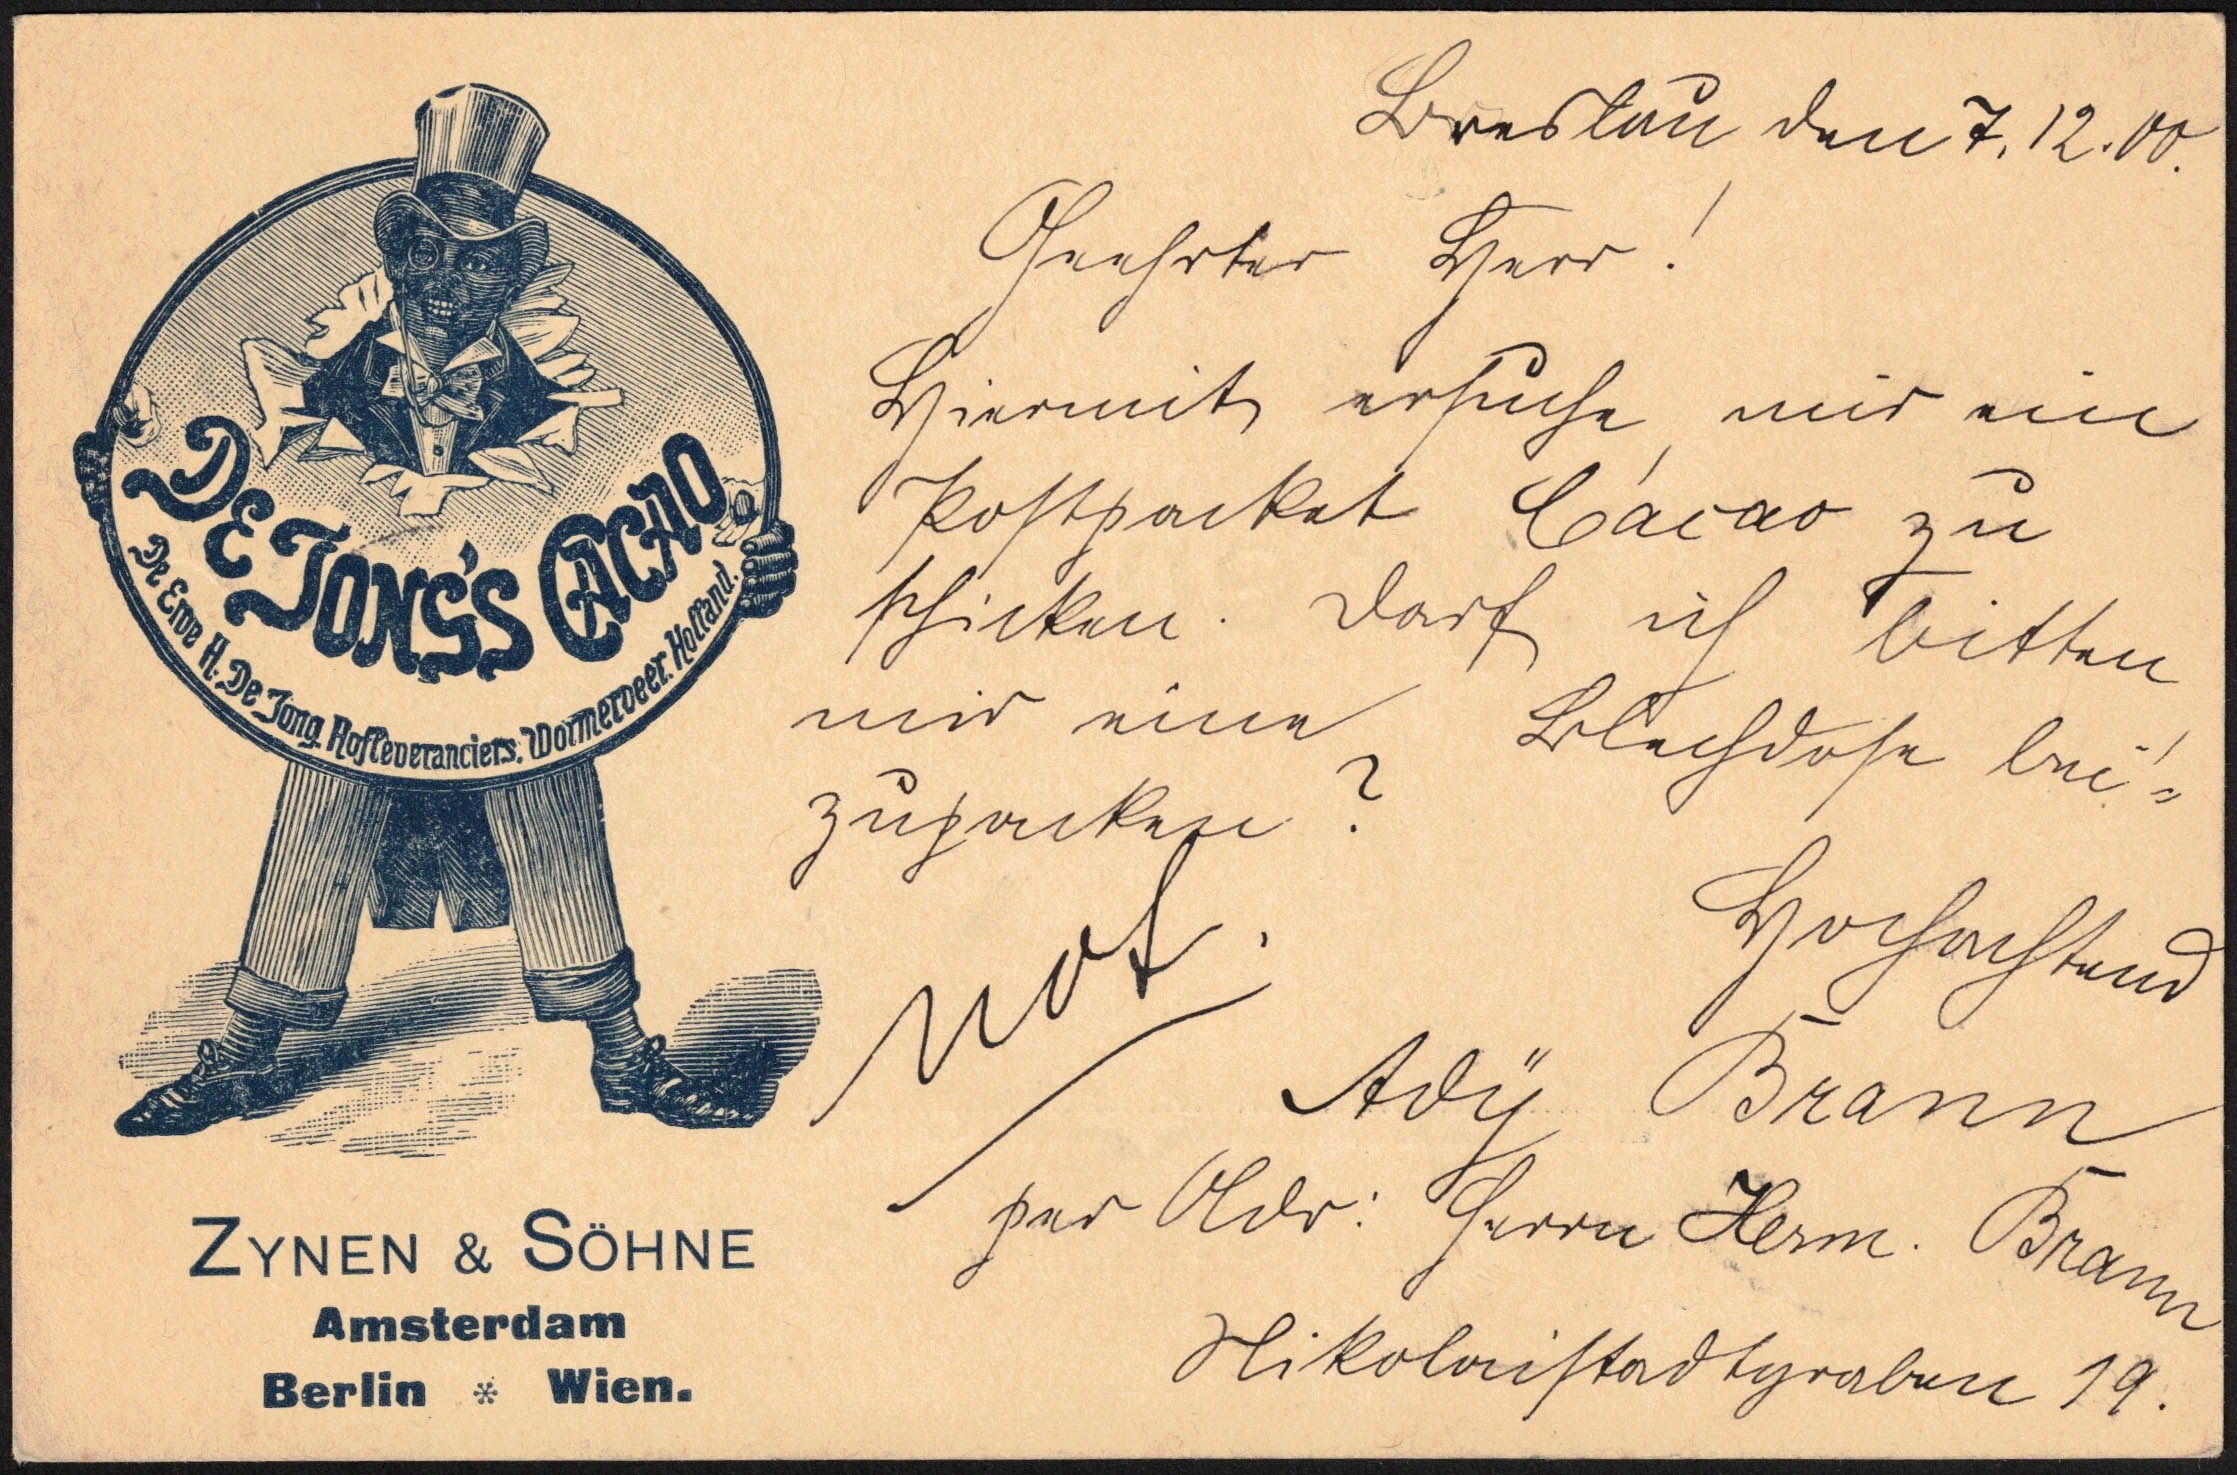 DE JONG'S CACAO.
De Erve H. De Jong. Hofleveranciers. Wormerveer. Holland.
ZYNEN & SÖHNE
Amsterdam
Berlin * Wien.
Breslau den 7. 12. 00.
Geehrter Herr!
Hiermit ersuche, mir ein
Postpacket Cacao zu
schicken. Darf ich bitten
mir eine Blechdose bei=
zupacken?
Hochachtend
Not.
Ady Brann
per Adr: Herrn Herm. Brann
Nikolaistadtgraben 19.